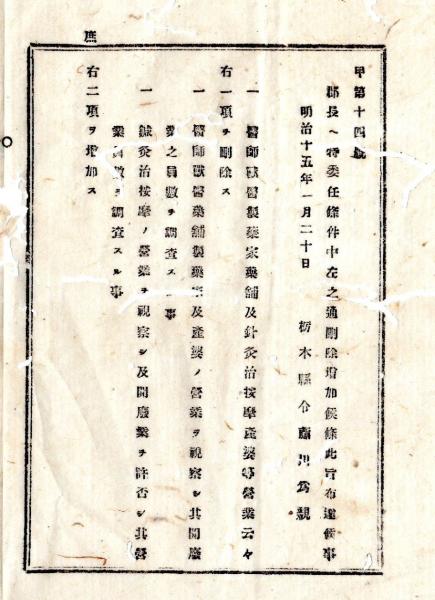 甲第十四號
郡長ヘ特委任條件中左之通刪除増加候條此旨布達候事
明治十五年一月二十日
栃木縣令藤川爲親
一 醫師獸醫製藥家藥舖及針灸治按摩産婆等營業云々
右一項ヲ刪除ス
一 醫師獸醫藥舖製藥家及産婆ノ營業ヲ視察シ其開廢
業之員數ヲ調査スル事
一 鍼灸治按摩ノ營業ヲ視察シ及開廢業ヲ許否シ其營
業員數ヲ調査スル事
右二項ヲ増加ス
庶